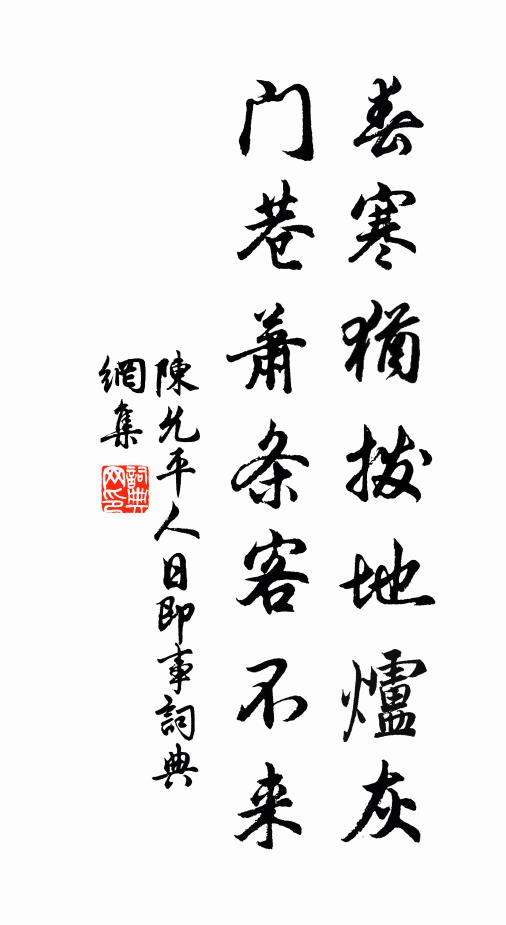 春寒猶撥地爐灰
門巷蕭条客不来
陳允平人日即事詞典
網集
詞典網印